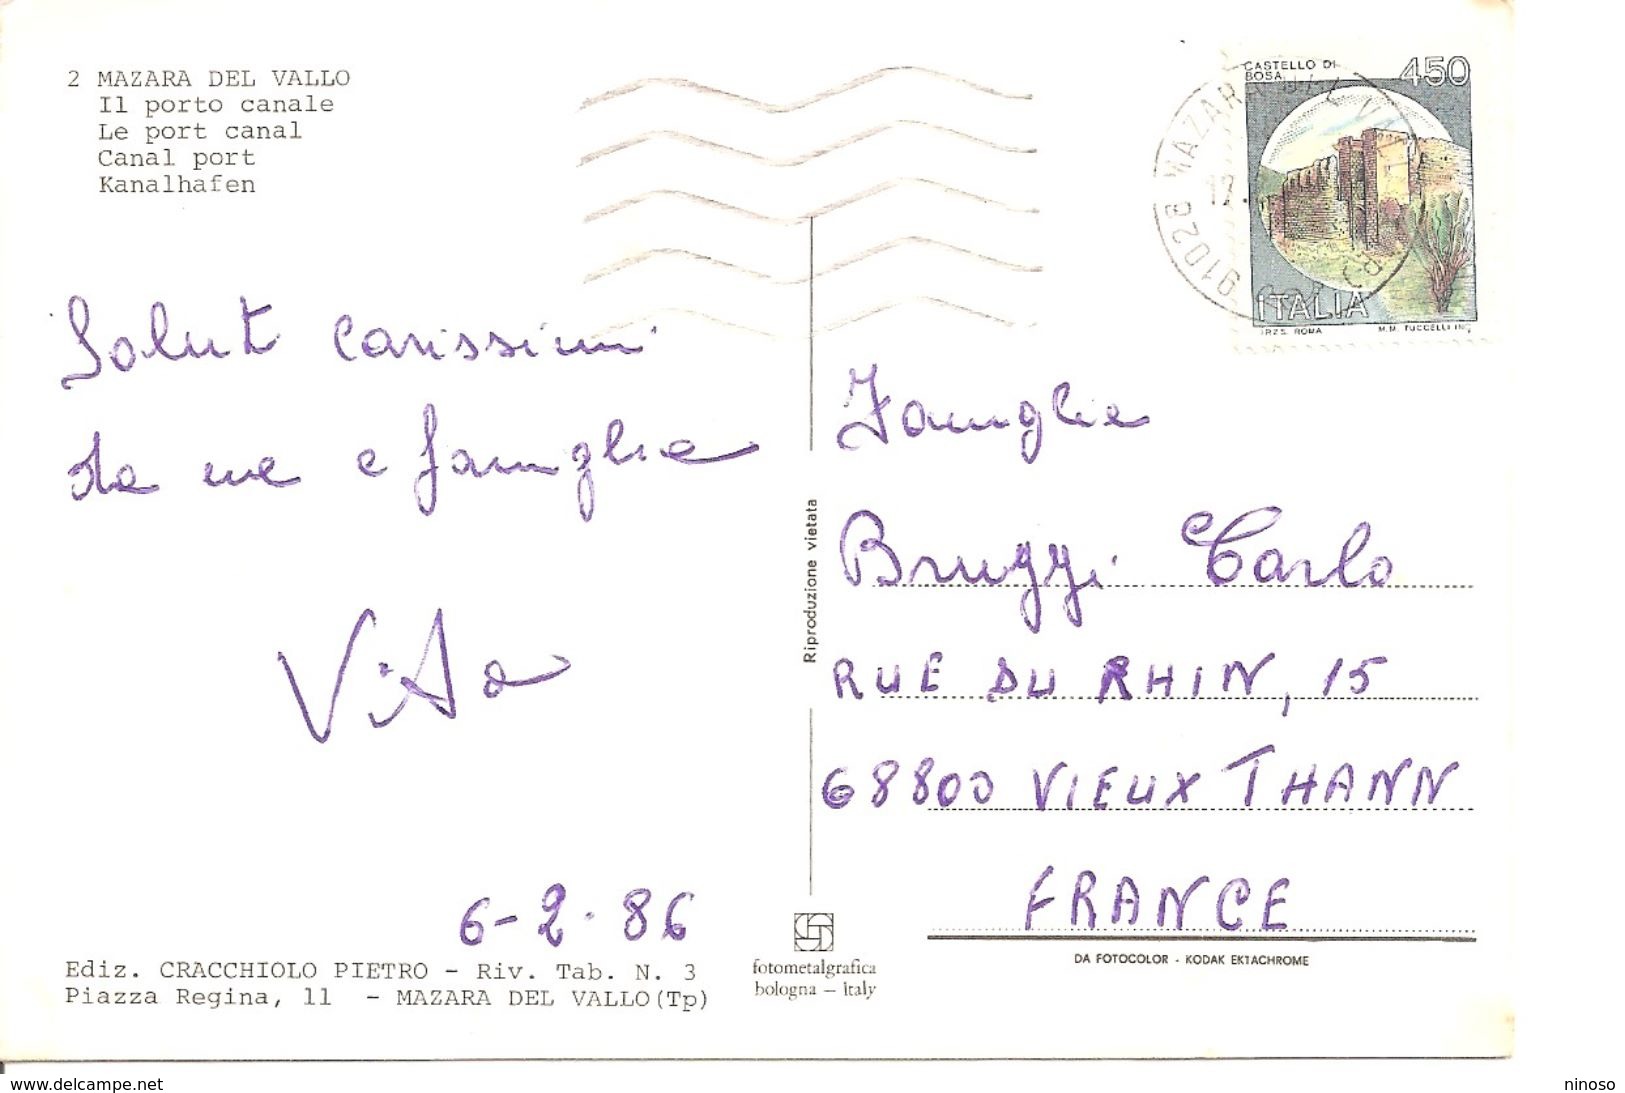 2 MAZARA DEL VALLO
Il porto canale
Le port canal
Canal port
Kanalhafen
CASTELLO DI
BOSA
450
91028 MAZARA DEL VALLO
12.
ITALIA
I.P.Z.S. ROMA
M.M. TUCCELLI INC.
Saluti carissimi
da me e famiglia
Vito
6-2-86
Famiglia
Bruggi Carlo
RUE DU RHIN, 15
68800 VIEUX THANN
FRANCE
Riproduzione vietata
Ediz. CRACCHIOLO PIETRO - Riv. Tab. N. 3
Piazza Regina, 11 - MAZARA DEL VALLO(Tp)
fotometalgrafica
bologna – italy
DA FOTOCOLOR - KODAK EKTACHROME
www.delcampe.net
ninoso